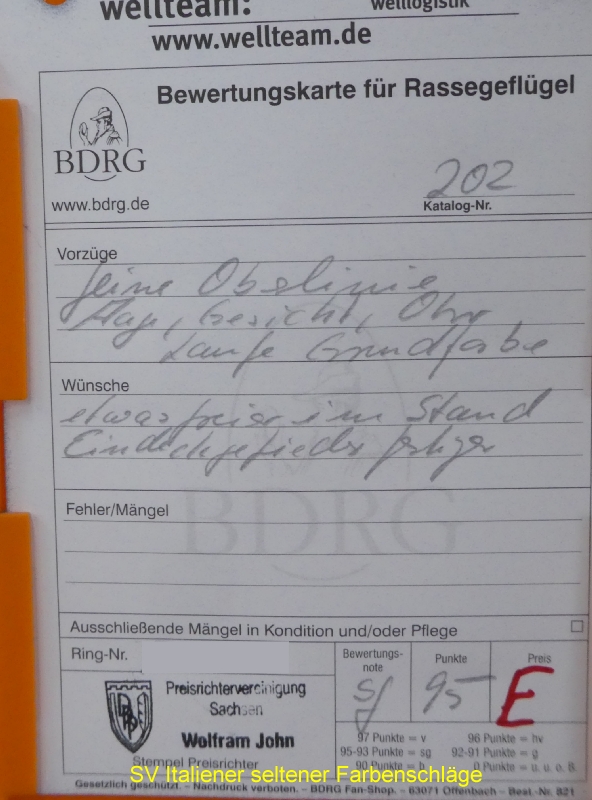 wellteam:
welllogistik
www.wellteam.de
Bewertungskarte für Rassegeflügel
BDRG
www.bdrg.de
202
Katalog-Nr.
Vorzüge
feine Obelinie
Auge, Gesicht, Ohr
Läufe Grundfarbe
Wünsche
etwas freier im Stand
Eindeckgefieder
Fehler/Mängel
BDRG
Ausschließende Mängel in Kondition und/oder Pflege
Ring-Nr.
Bewertungs-
note
Punkte
Preis
sg
95
E
Preisrichtervereinigung
Sachsen
Wolfram John
Stempel Preisrichter
97 Punkte = v
96 Punkte = hv
95-93 Punkte = sg
92-91 Punkte = g
90 Punkte = b
0 Punkte = u. o. B.
SV Italiener seltener Farbenschläge
Gesetzlich geschützt. – Nachdruck verboten. – BDRG Fan-Shop. – 63071 Offenbach – Best.-Nr. 821